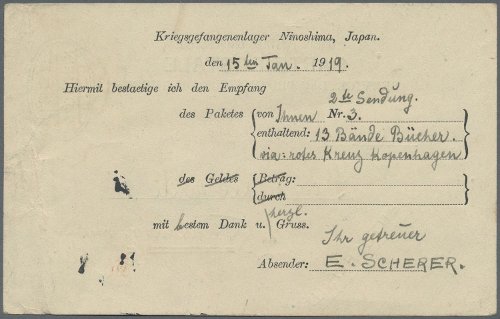 Kriegsgefangenenlager Ninoshima, Japan.
den 15ten Jan. 1919.
Hiermit bestaetige ich den Empfang
2te Sendung.
des Paketes von Ihnen Nr. 3.
enthaltend: 13 Bände Bücher.
via: rotes Kreuz Kopenhagen
des Geldes Betrag:
durch
herzl.
mit bestem Dank u. Gruss.
Ihr getreuer
Absender: E. SCHERER.